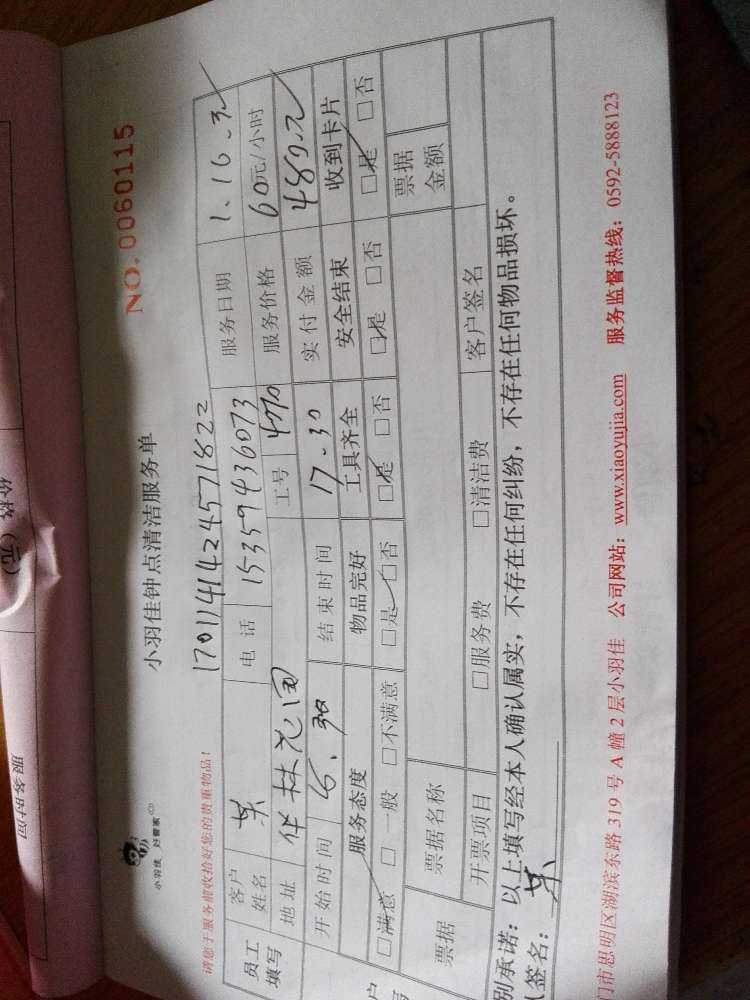 价格（元）
服务时间
小羽佳 好管家
小羽佳钟点清洁服务单
NO. 0060115
请您于服务前收拾好您的贵重物品！
1701141424571822
员工填写
客户姓名
电话 15359436073 服务日期 1.16.
地址 华林花园 工号 4070 服务价格 60元/小时
开始时间 结束时间 17-30 实付金额 480.
服务态度 物品完好 工具齐全 安全结束 收到卡片
□满意 □一般 □不满意 □是 □否 □是 □否 □是 □否 □是 □否
票据 票据名称 票据金额
开票项目 □服务费 □清洁费 客户签名
别承诺：以上填写经本人确认属实，不存在任何纠纷，不存在任何物品损坏。
签名：
门市思明区湖滨东路 319 号 A 幢 2 层小羽佳 公司网站：www.xiaoyujia.com 服务监督热线：0592-5888123